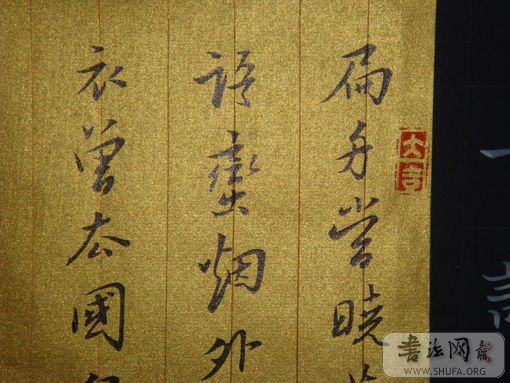 扁舟當曉
語蠻烟外
衣曾去國
大吉
書法网
WWW.SHUFA.ORG